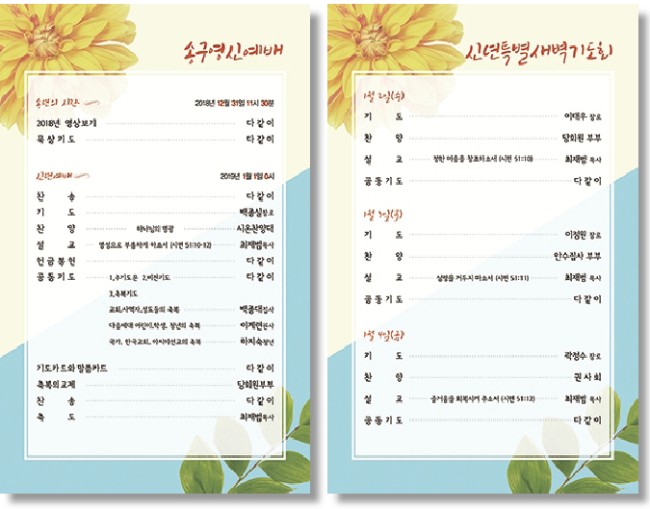 송구영신예배
송년의 시간 2018년 12월 31일 11시 30분
2018년 영상보기 다같이
묵상기도 다같이
신년예배 2019년 1월 1일 0시
찬 송 다같이
기 도 백종실장로
찬 양 하나님의 영광 시온찬양대
설 교 열심으로 부름하게 하소서 (시편 51:10-12) 최재범목사
헌금봉헌 다같이
공동기도 1.주기도문 2.비전기도 다같이
3.축복기도
교회,사역자,성도들의 축복 백종대집사
다음세대 어린이,학생, 청년의 축복 이계연권사
국가, 한국교회, 아시아선교의 축복 하지숙청년
기도카드와 말씀카드 다같이
축복의교제 당회원부부
찬 송 다같이
축 도 최재범목사
신년특별새벽기도회
1월 2일(수)
기 도 이태우 장로
찬 양 당회원 부부
설 교 정한 마음을 창조하소서 (시편 51:10) 최재범 목사
공동기도 다같이
1월 3일(목)
기 도 이정원 장로
찬 양 안수집사 부부
설 교 성령을 거두지 마소서 (시편 51:11) 최재범 목사
공동기도 다같이
1월 4일(금)
기 도 곽정수 장로
찬 양 권사회
설 교 즐거움을 회복시켜 주소서 (시편 51:12) 최재범 목사
공동기도 다같이